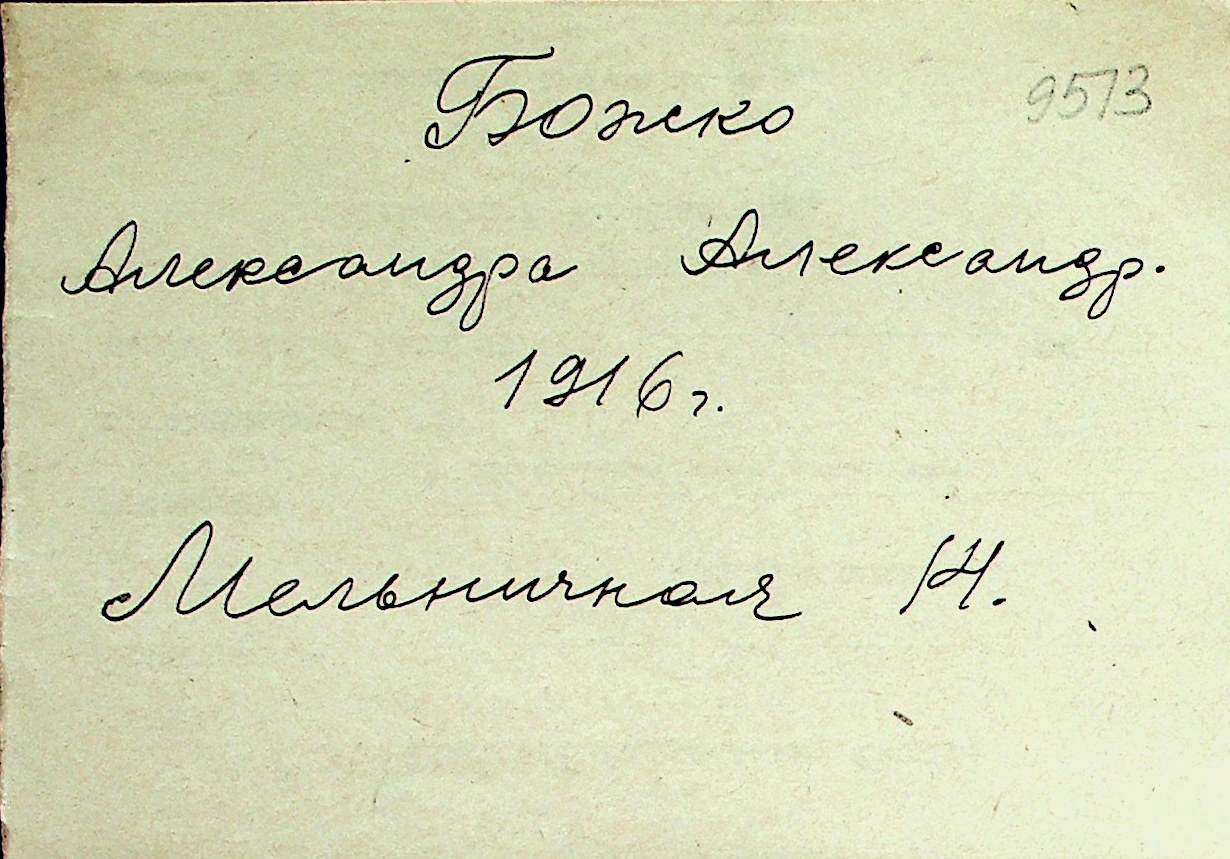 Божко 9573
Александра Александр.
1916г.
Мельничная 14.